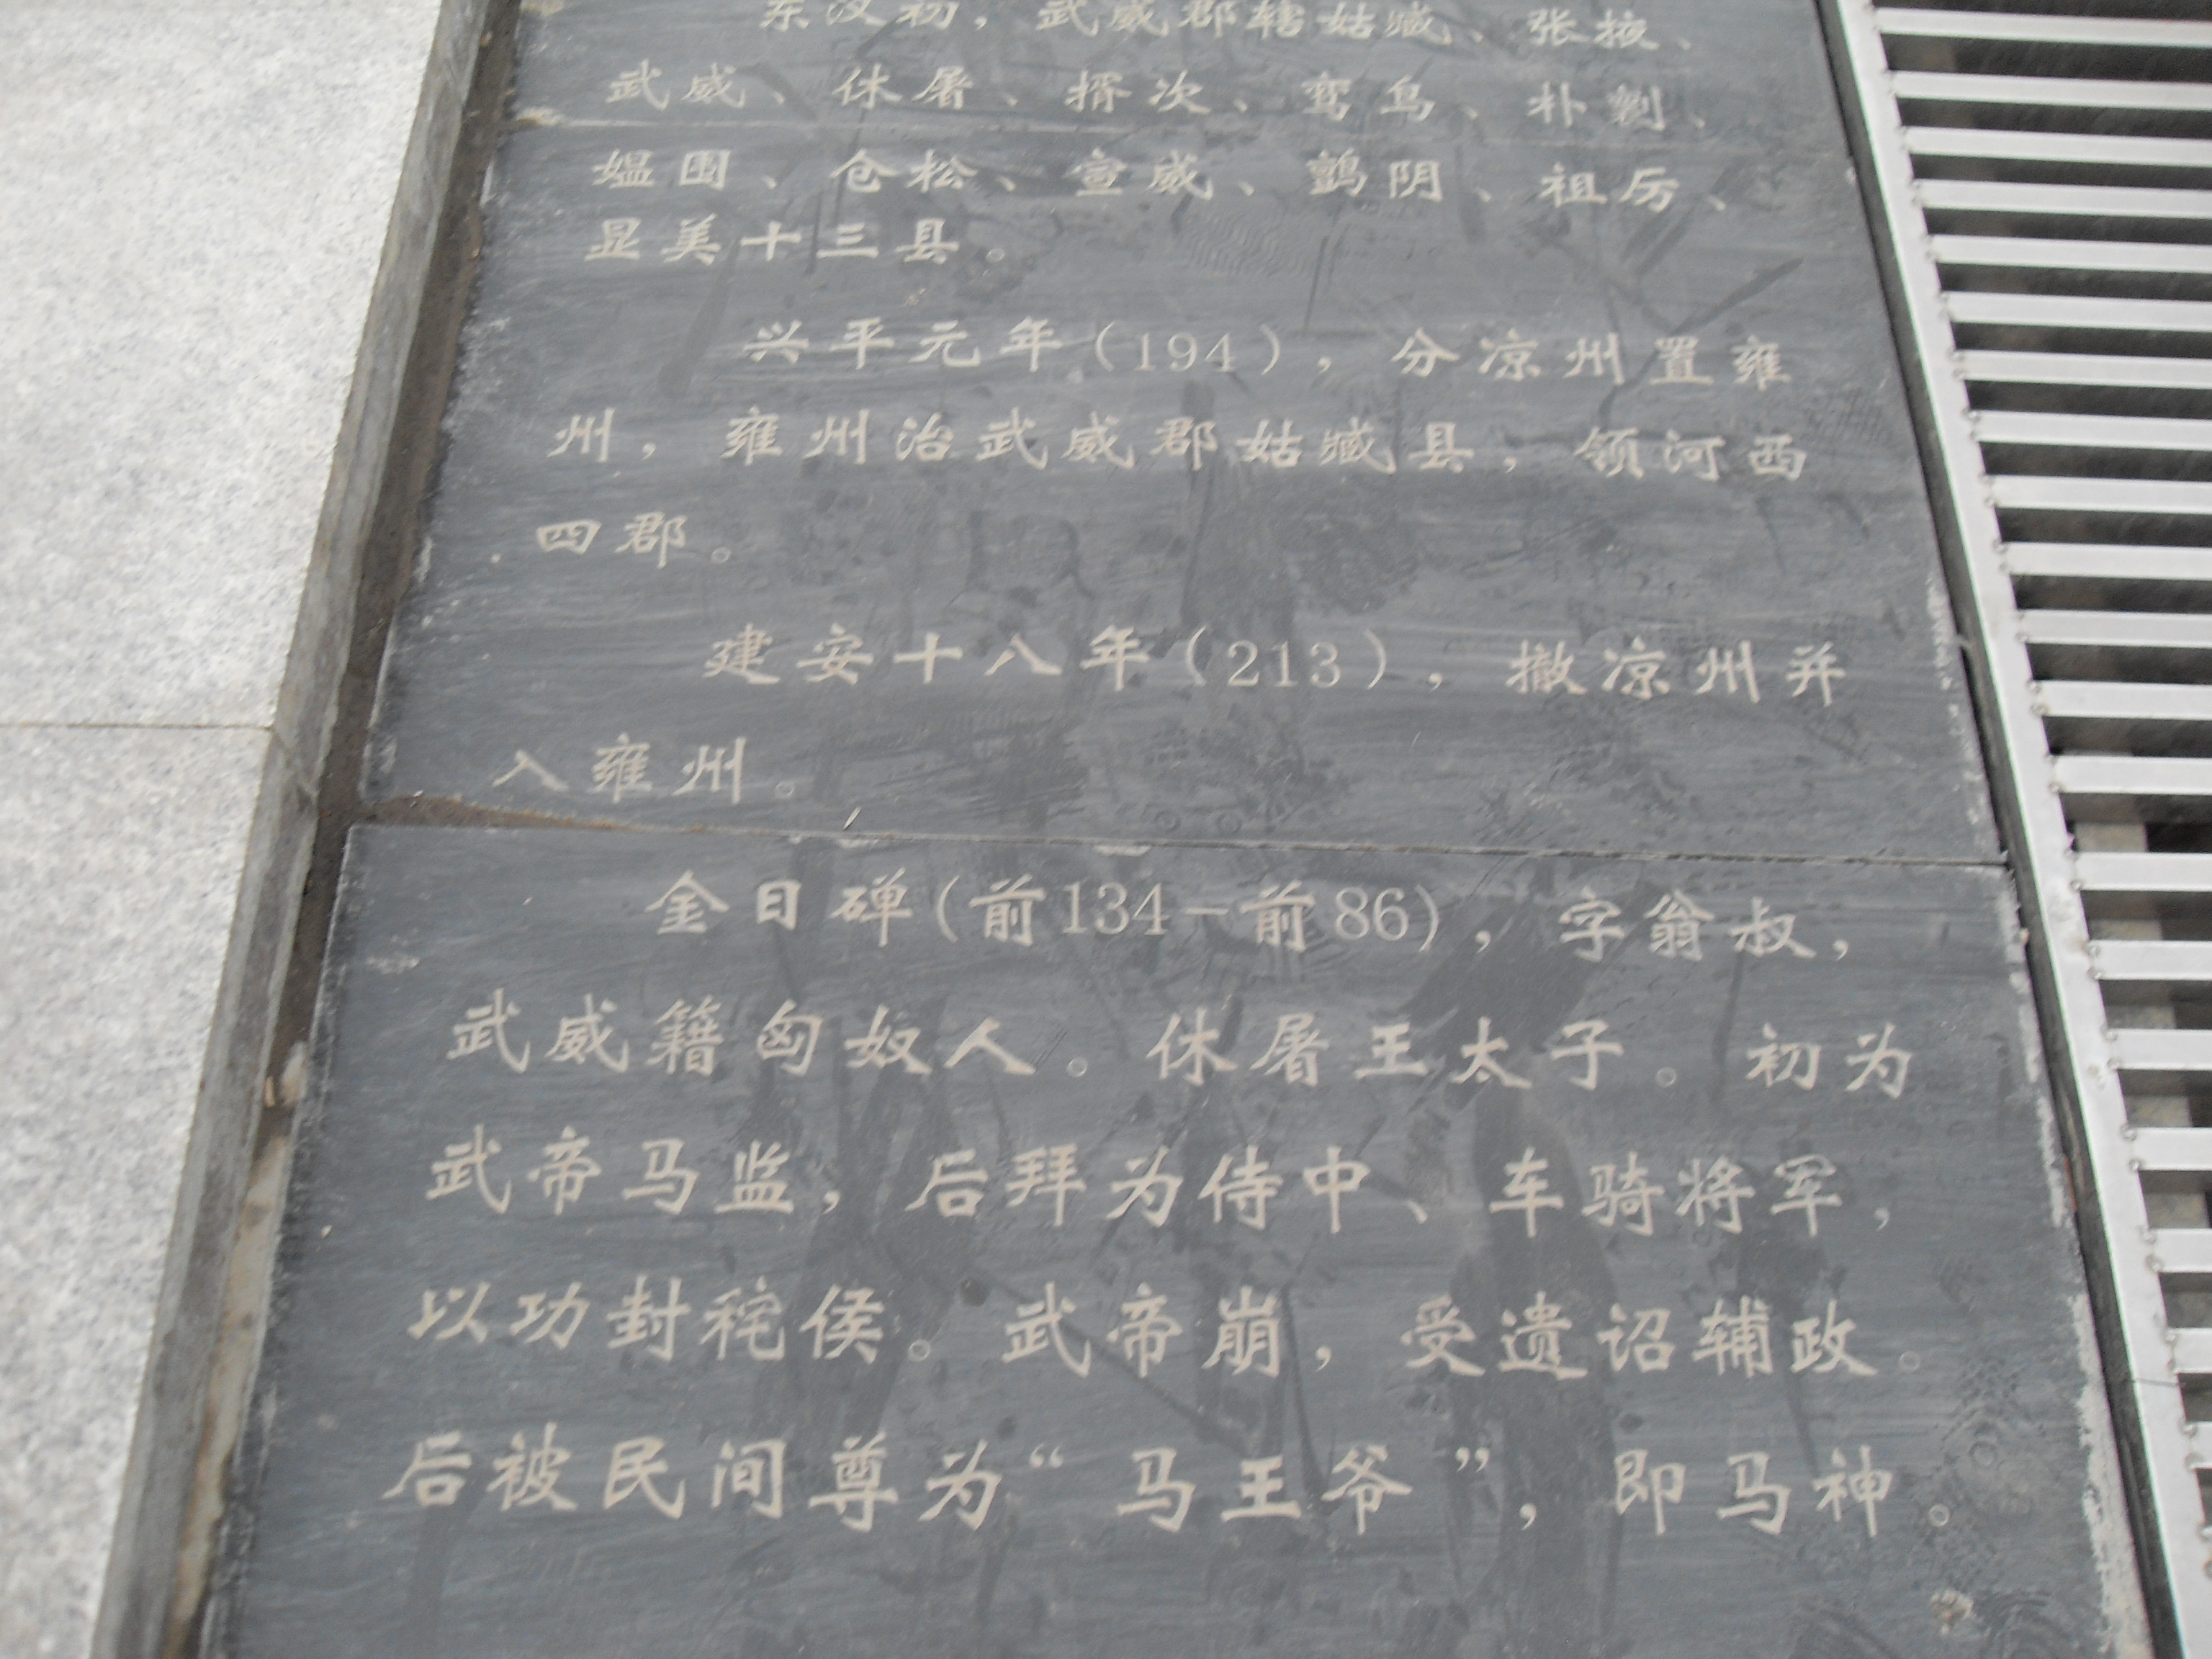 东汉初，武威郡辖姑臧、张掖、
武威、休屠、揟次、鸾鸟、朴劋、
媪围、仓松、宣威、鹯阴、祖厉、
显美十三县。
兴平元年（194），分凉州置雍
州，雍州治武威郡姑臧县，领河西
四郡。
建安十八年（213），撤凉州并
入雍州。
金日磾(前134-前86)，字翁叔，
武威籍匈奴人。休屠王太子。初为
武帝马监，后拜为侍中、车骑将军，
以功封秺侯。武帝崩，受遗诏辅政。
后被民间尊为“马王爷”，即马神。